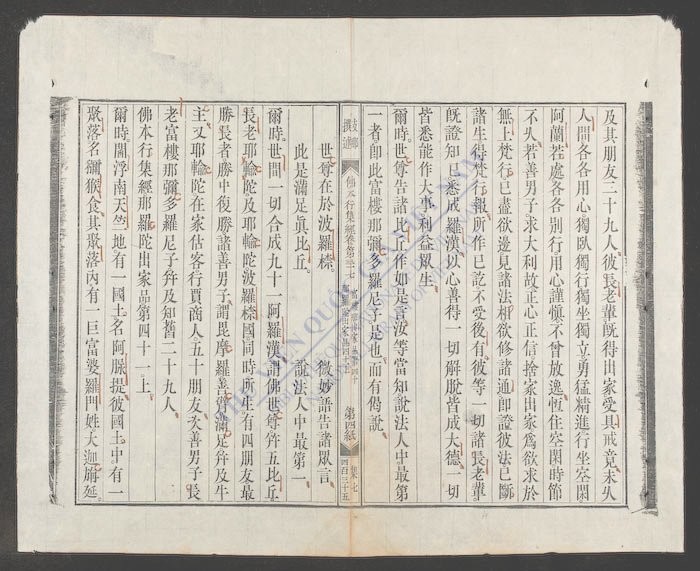 及其朋友二十九人彼長老輩既得出家受具戒竟未久
人間各各用心獨臥獨行獨坐獨立勇猛精進行坐空閑
阿蘭若處各各別行用心謹慎不曾放逸恆住空閑時節
不久若善男子求大利故正心正信捨家出家爲欲求於
無上梵行已盡欲邊見諸法相欲修諸通卽證彼法已斷
諸生得梵行報所作已訖不受後有彼等一切諸長老輩
旣證知已悉成羅漢以心善得一切解脫皆成大德一切
皆悉能作大事利益眾生
爾時世尊告諸比丘作如是言汝等當知說法人中最第
一者卽此富樓那彌多羅尼子是也而有偈說
世尊在於波羅㮈 微妙語告諸眾言
此是滿足真比丘 說法人中最第一
佛本行集經卷第三十七 第四紙 集七 四百三十五
爾時世間一切合成九十一阿羅漢謂佛世尊幷五比丘
長老耶輸陀及耶輸陀波羅㮈國同時所生有四朋友最
勝長者勝中復勝諸善男子謂毘摩羅善臂滿足幷及牛
主又耶輸陀在家估客行賈商人五十朋友次善男子長
老富樓那彌多羅尼子幷及知舊二十九人
佛本行集經那羅陀出家品第四十一上
爾時閻浮南天竺地有一國土名阿脤提彼國土中有一
聚落名獼猴食其聚落內有一巨富婆羅門姓大迦旃延